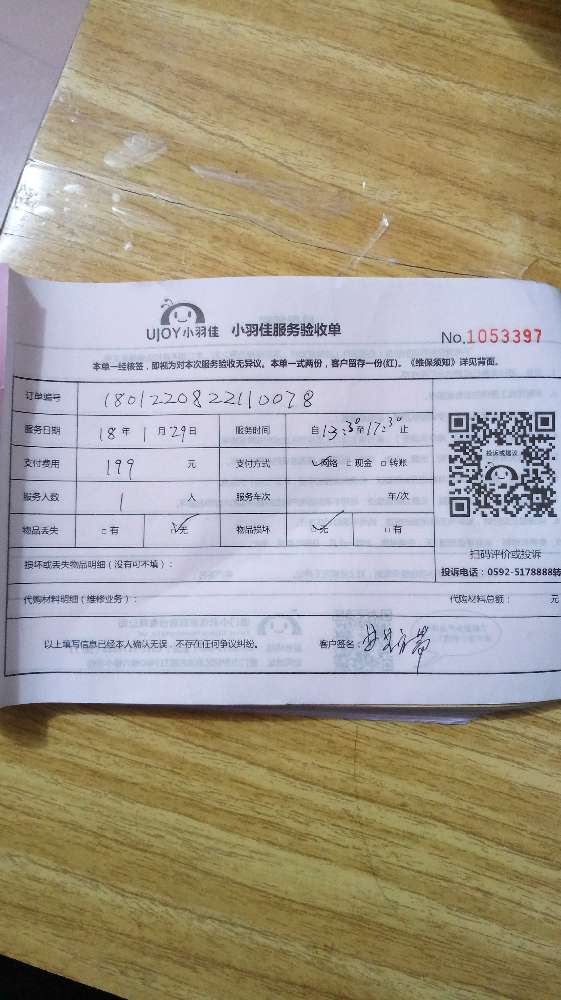 UJOY小羽佳 小羽佳服务验收单
No.1053397
本单一经核签,即视为对本次服务验收无异议。本单一式两份,客户留存一份(红)。《维保须知》详见背面。
订单编号 1801220822110078
服务日期 18年1月29日 服务时间 自13:30至17:30止
支付费用 199 元 支付方式 ☑网络 □现金 □转账
服务人数 1 人 服务车次 车/次
物品丢失 □有 ☑无 物品损坏 ☑无 □有
投诉或建议
扫码评价或投诉
投诉电话:0592-5178888转
损坏或丢失物品明细(没有可不填):
代购材料明细(维修业务): 代购材料总额: 元
以上填写信息已经本人确认无误,不存在任何争议纠纷。 客户签名: